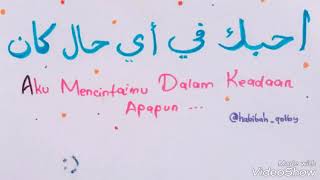 احبك في أي حال كان
Aku Mencintaimu Dalam Keadaan
Apapun ...
@habibah_qolby
:)
Made with
VideoShow